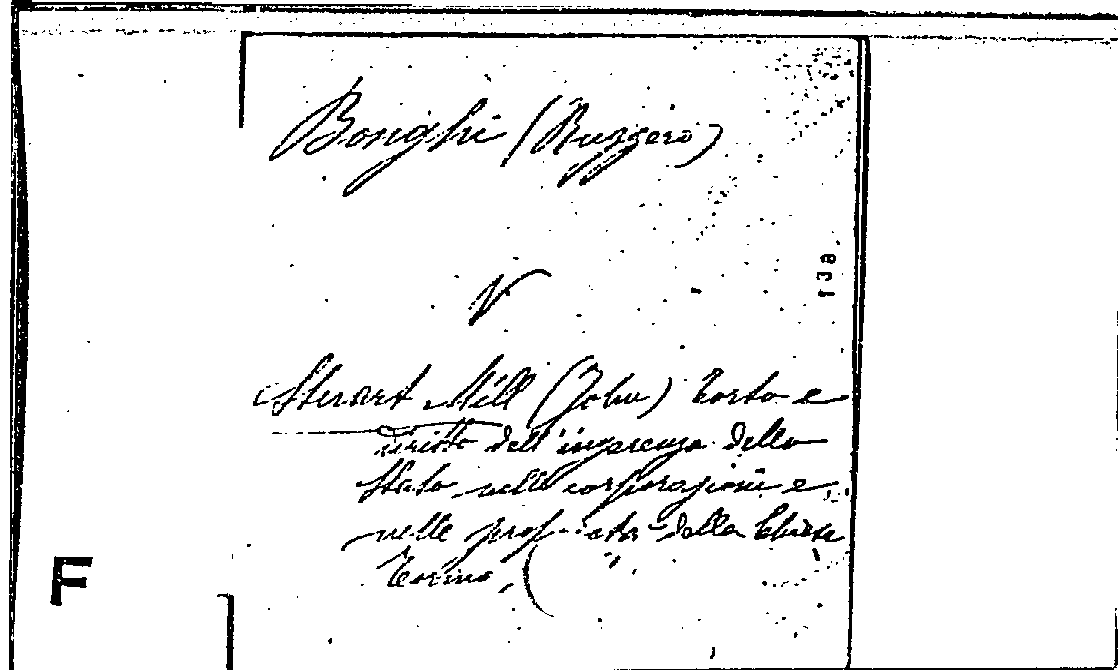 Bonghi (Ruggero)
V
Stuart Mill (John) Torto e
diritto dell'ingerenza dello
Stato nelle corporazioni e
nelle proprietà della Chiesa
Torino,
F